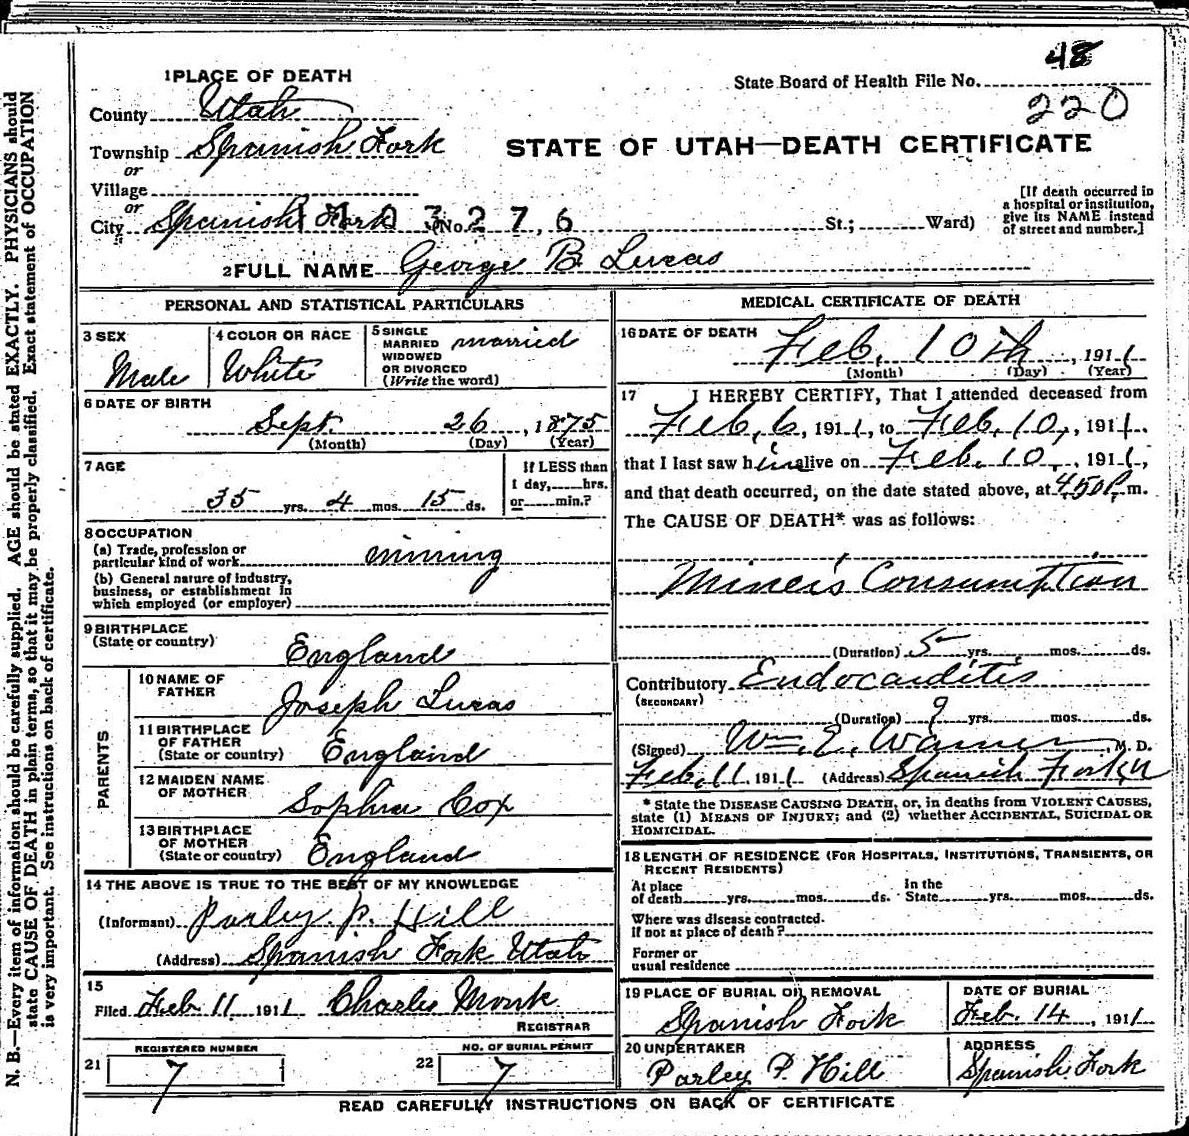 48
State Board of Health File No.
220
1 PLACE OF DEATH
County Utah
Township Spanish Fork
or
Village
or
City Spanish Fork No. St.; Ward)
1103276
STATE OF UTAH—DEATH CERTIFICATE
[If death occurred in
a hospital or institution,
give its NAME instead
of street and number.]
2 FULL NAME George B. Lucas
PERSONAL AND STATISTICAL PARTICULARS
3 SEX
Male
4 COLOR OR RACE
White
5 SINGLE
MARRIED
WIDOWED
OR DIVORCED
(Write the word)
married
6 DATE OF BIRTH
Sept. 26, 1875
(Month) (Day) (Year)
7 AGE
35 yrs. 4 mos. 15 ds.
If LESS than
1 day, hrs.
or min.?
8 OCCUPATION
(a) Trade, profession or
particular kind of work mining
(b) General nature of industry,
business, or establishment in
which employed (or employer)
9 BIRTHPLACE
(State or country)
England
PARENTS
10 NAME OF
FATHER
Joseph Lucas
11 BIRTHPLACE
OF FATHER
(State or country) England
12 MAIDEN NAME
OF MOTHER
Sophia Cox
13 BIRTHPLACE
OF MOTHER
(State or country) England
14 THE ABOVE IS TRUE TO THE BEST OF MY KNOWLEDGE
(Informant) Parley P. Hill
(Address) Spanish Fork Utah
15
Filed Feb. 11 1911 Charles Monk
REGISTRAR
REGISTERED NUMBER
21 7
NO. OF BURIAL PERMIT
22 7
MEDICAL CERTIFICATE OF DEATH
16 DATE OF DEATH
Feb. 10th, 1911
(Month) (Day) (Year)
17 I HEREBY CERTIFY, That I attended deceased from
Feb. 6, 1911, to Feb. 10, 1911.
that I last saw him alive on Feb. 10, 1911,
and that death occurred, on the date stated above, at 4.50 P. m.
The CAUSE OF DEATH* was as follows:
Miner's Consumption
(Duration) 5 yrs. mos. ds.
Contributory Endocarditis
(SECONDARY)
(Duration) 9 yrs. mos. ds.
(Signed) Wm. E. Warner, M. D.
Feb. 11 1911 (Address) Spanish Fork U
* State the DISEASE CAUSING DEATH, or, in deaths from VIOLENT CAUSES,
state (1) MEANS OF INJURY; and (2) whether ACCIDENTAL, SUICIDAL OR
HOMICIDAL.
18 LENGTH OF RESIDENCE (FOR HOSPITALS, INSTITUTIONS, TRANSIENTS, OR
RECENT RESIDENTS)
At place
of death yrs. mos. ds.
In the
State yrs. mos. ds.
Where was disease contracted
if not at place of death?
Former or
usual residence
19 PLACE OF BURIAL OR REMOVAL
Spanish Fork
DATE OF BURIAL
Feb. 14, 1911
20 UNDERTAKER
Parley P. Hill
ADDRESS
Spanish Fork
READ CAREFULLY INSTRUCTIONS ON BACK OF CERTIFICATE
N. B.—Every item of information should be carefully supplied. AGE should be stated EXACTLY. PHYSICIANS should
state CAUSE OF DEATH in plain terms, so that it may be properly classified. Exact statement of OCCUPATION
is very important. See instructions on back of certificate.